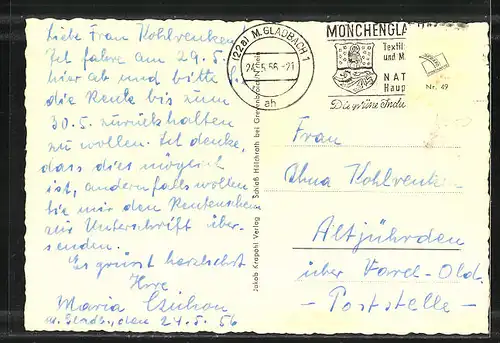 Liebe Frau Kohlrenken
Ich fahre am 29.5.
hier ab und bitte Sie
die Rente bis zum
30.5. zurückhalten
zu wollen. Ich denke,
dass dies möglich
ist, andernfalls wollen
Sie mir den Rentenschein
zur Unterschrift über-
senden.
Es grüsst herzlichst
Ihre
Maria
M. Gladb., den 24.5.56
Jakob Krapohl Verlag
Schloß Hülchrath bei Grevenbroich
(22a) M. GLADBACH 1
24.5.56 -21
ah
MÖNCHENGLA
Textil
und M
NAT
Haup
Die grüne Indu
Nr. 49
Frau
Kohlrenken
Altjührden
über Varel-Old.
- Poststelle -